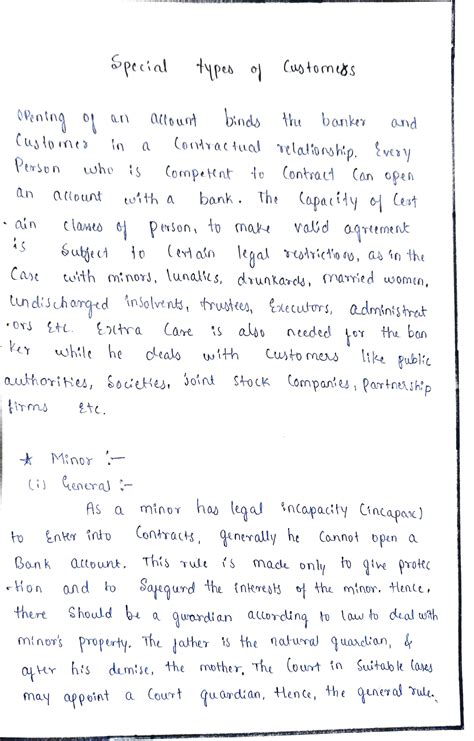 Special types of Customers
Opening of an account binds the banker and
Customer in a Contractual relationship. Every
Person who is Competent to Contract Can open
an account with a bank. The Capacity of Cert
-ain classes of person, to make valid agreement
is Subject to Certain legal restrictions, as in the
Case with minors, lunatics, drunkards, married women,
undischarged insolvents, trustees, Executors, administrat
-ors Etc. Extra Care is also needed for the ban
-ker while he deals with Customers like public
authorities, Societies, Joint Stock Companies, partnership
firms Etc.
★ Minor :-
(i) General :-
As a minor has legal incapacity (incapax)
to Enter into Contracts, generally he Cannot open a
Bank account. This rule is made only to give protec
-tion and to Safegurd the interests of the minor. Hence,
there Should be a guardian according to law to deal with
minor's property. The father is the natural guardian, &
after his demise, the mother. The Court in Suitable Cases
may appoint a Court guardian, Hence, the general rule.